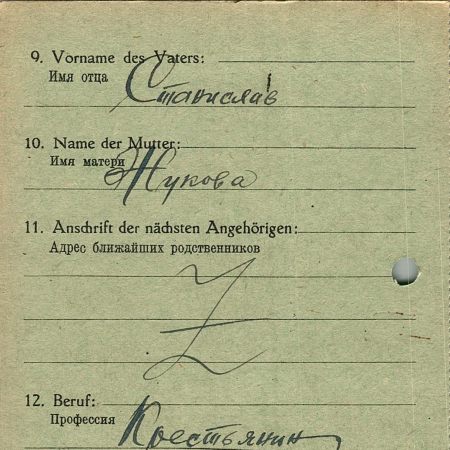 9. Vorname des Vaters:
Имя отца
Станислав
10. Name der Mutter:
Имя матери
Жукова
11. Anschrift der nächsten Angehörigen:
Адрес ближайших родственников
12. Beruf:
Профессия
Крестьянин